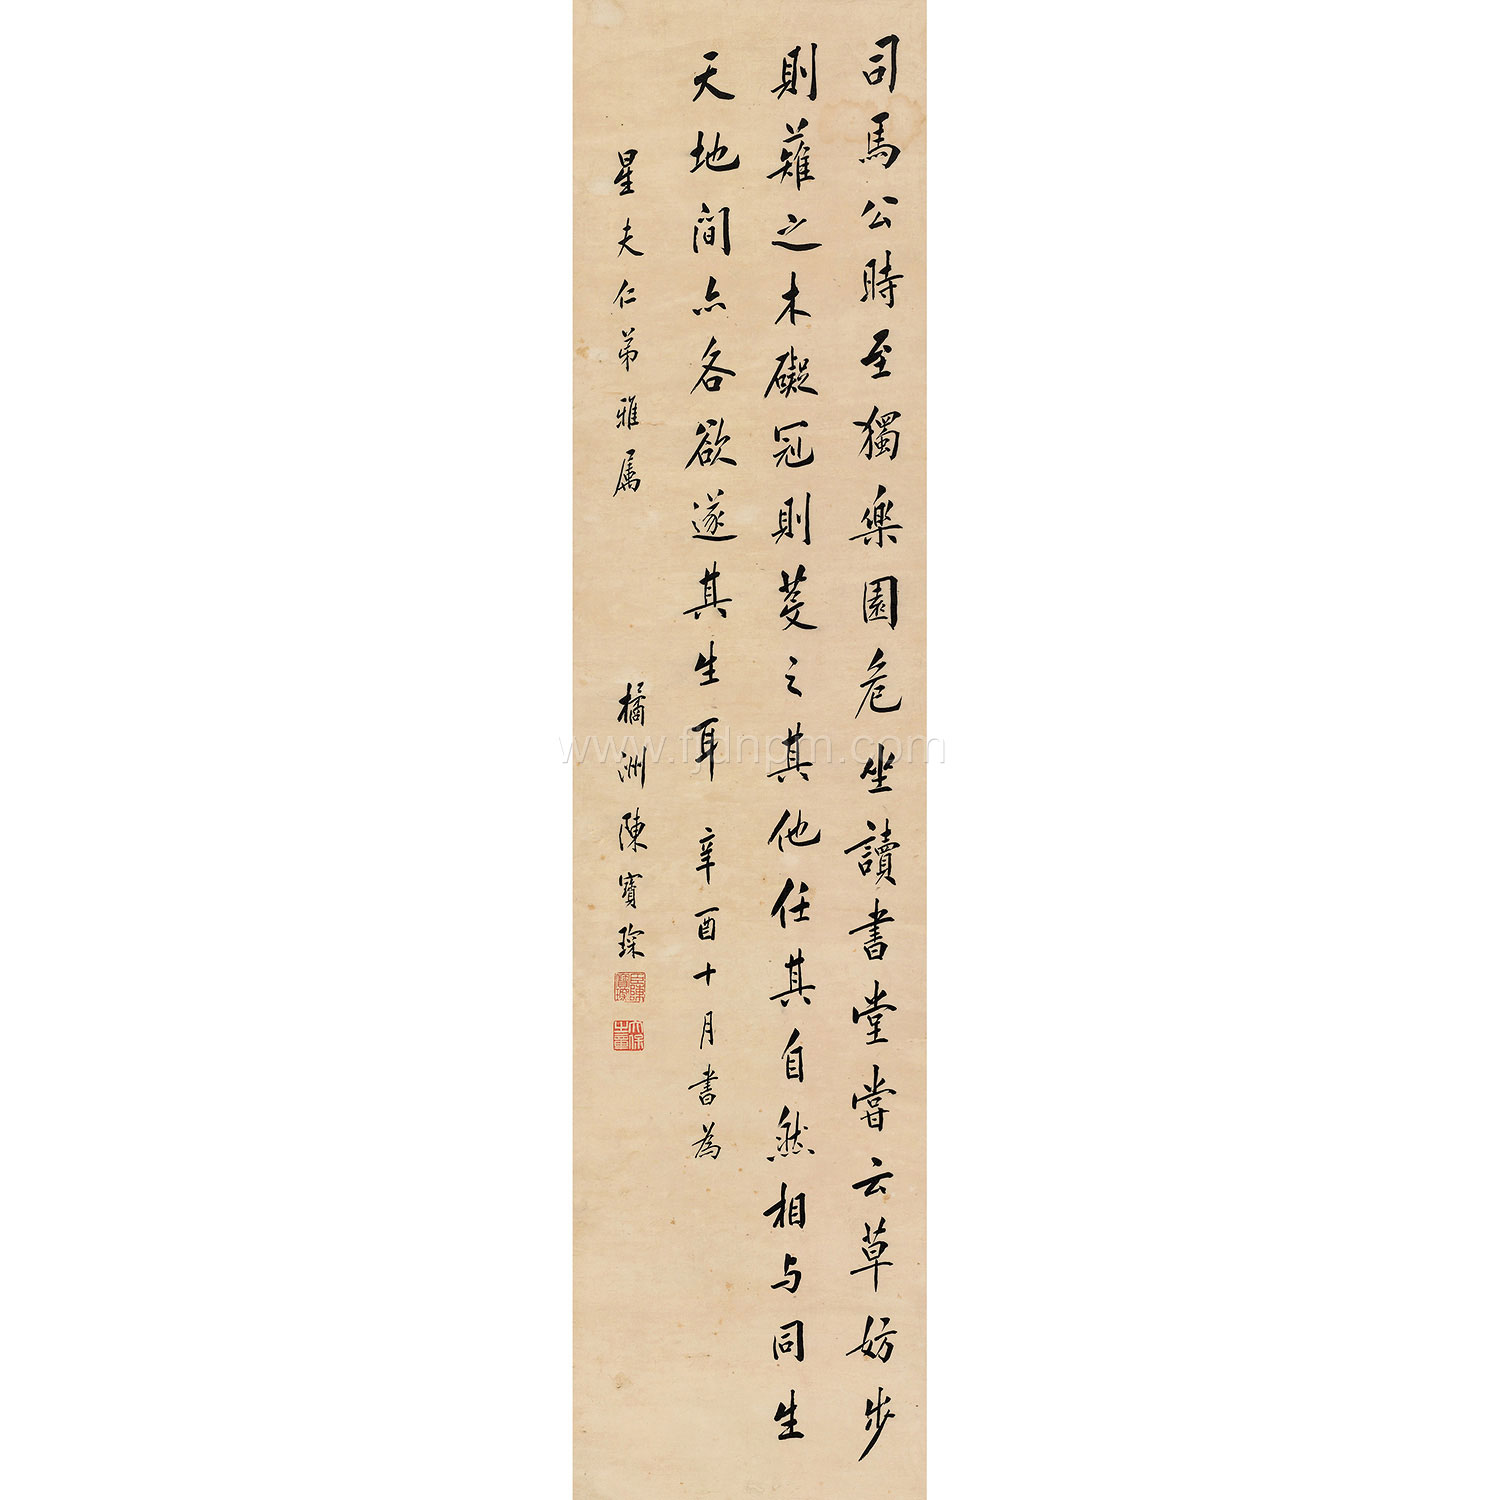 司馬公時至獨樂園危坐讀書堂嘗云草妨步
則薙之木礙冠則芟之其他任其自然相与同生
天地間亦各欲遂其生耳 辛酉十月書為
星夫仁弟雅属
橘洲陳寶琛
www.fjdnpm.com